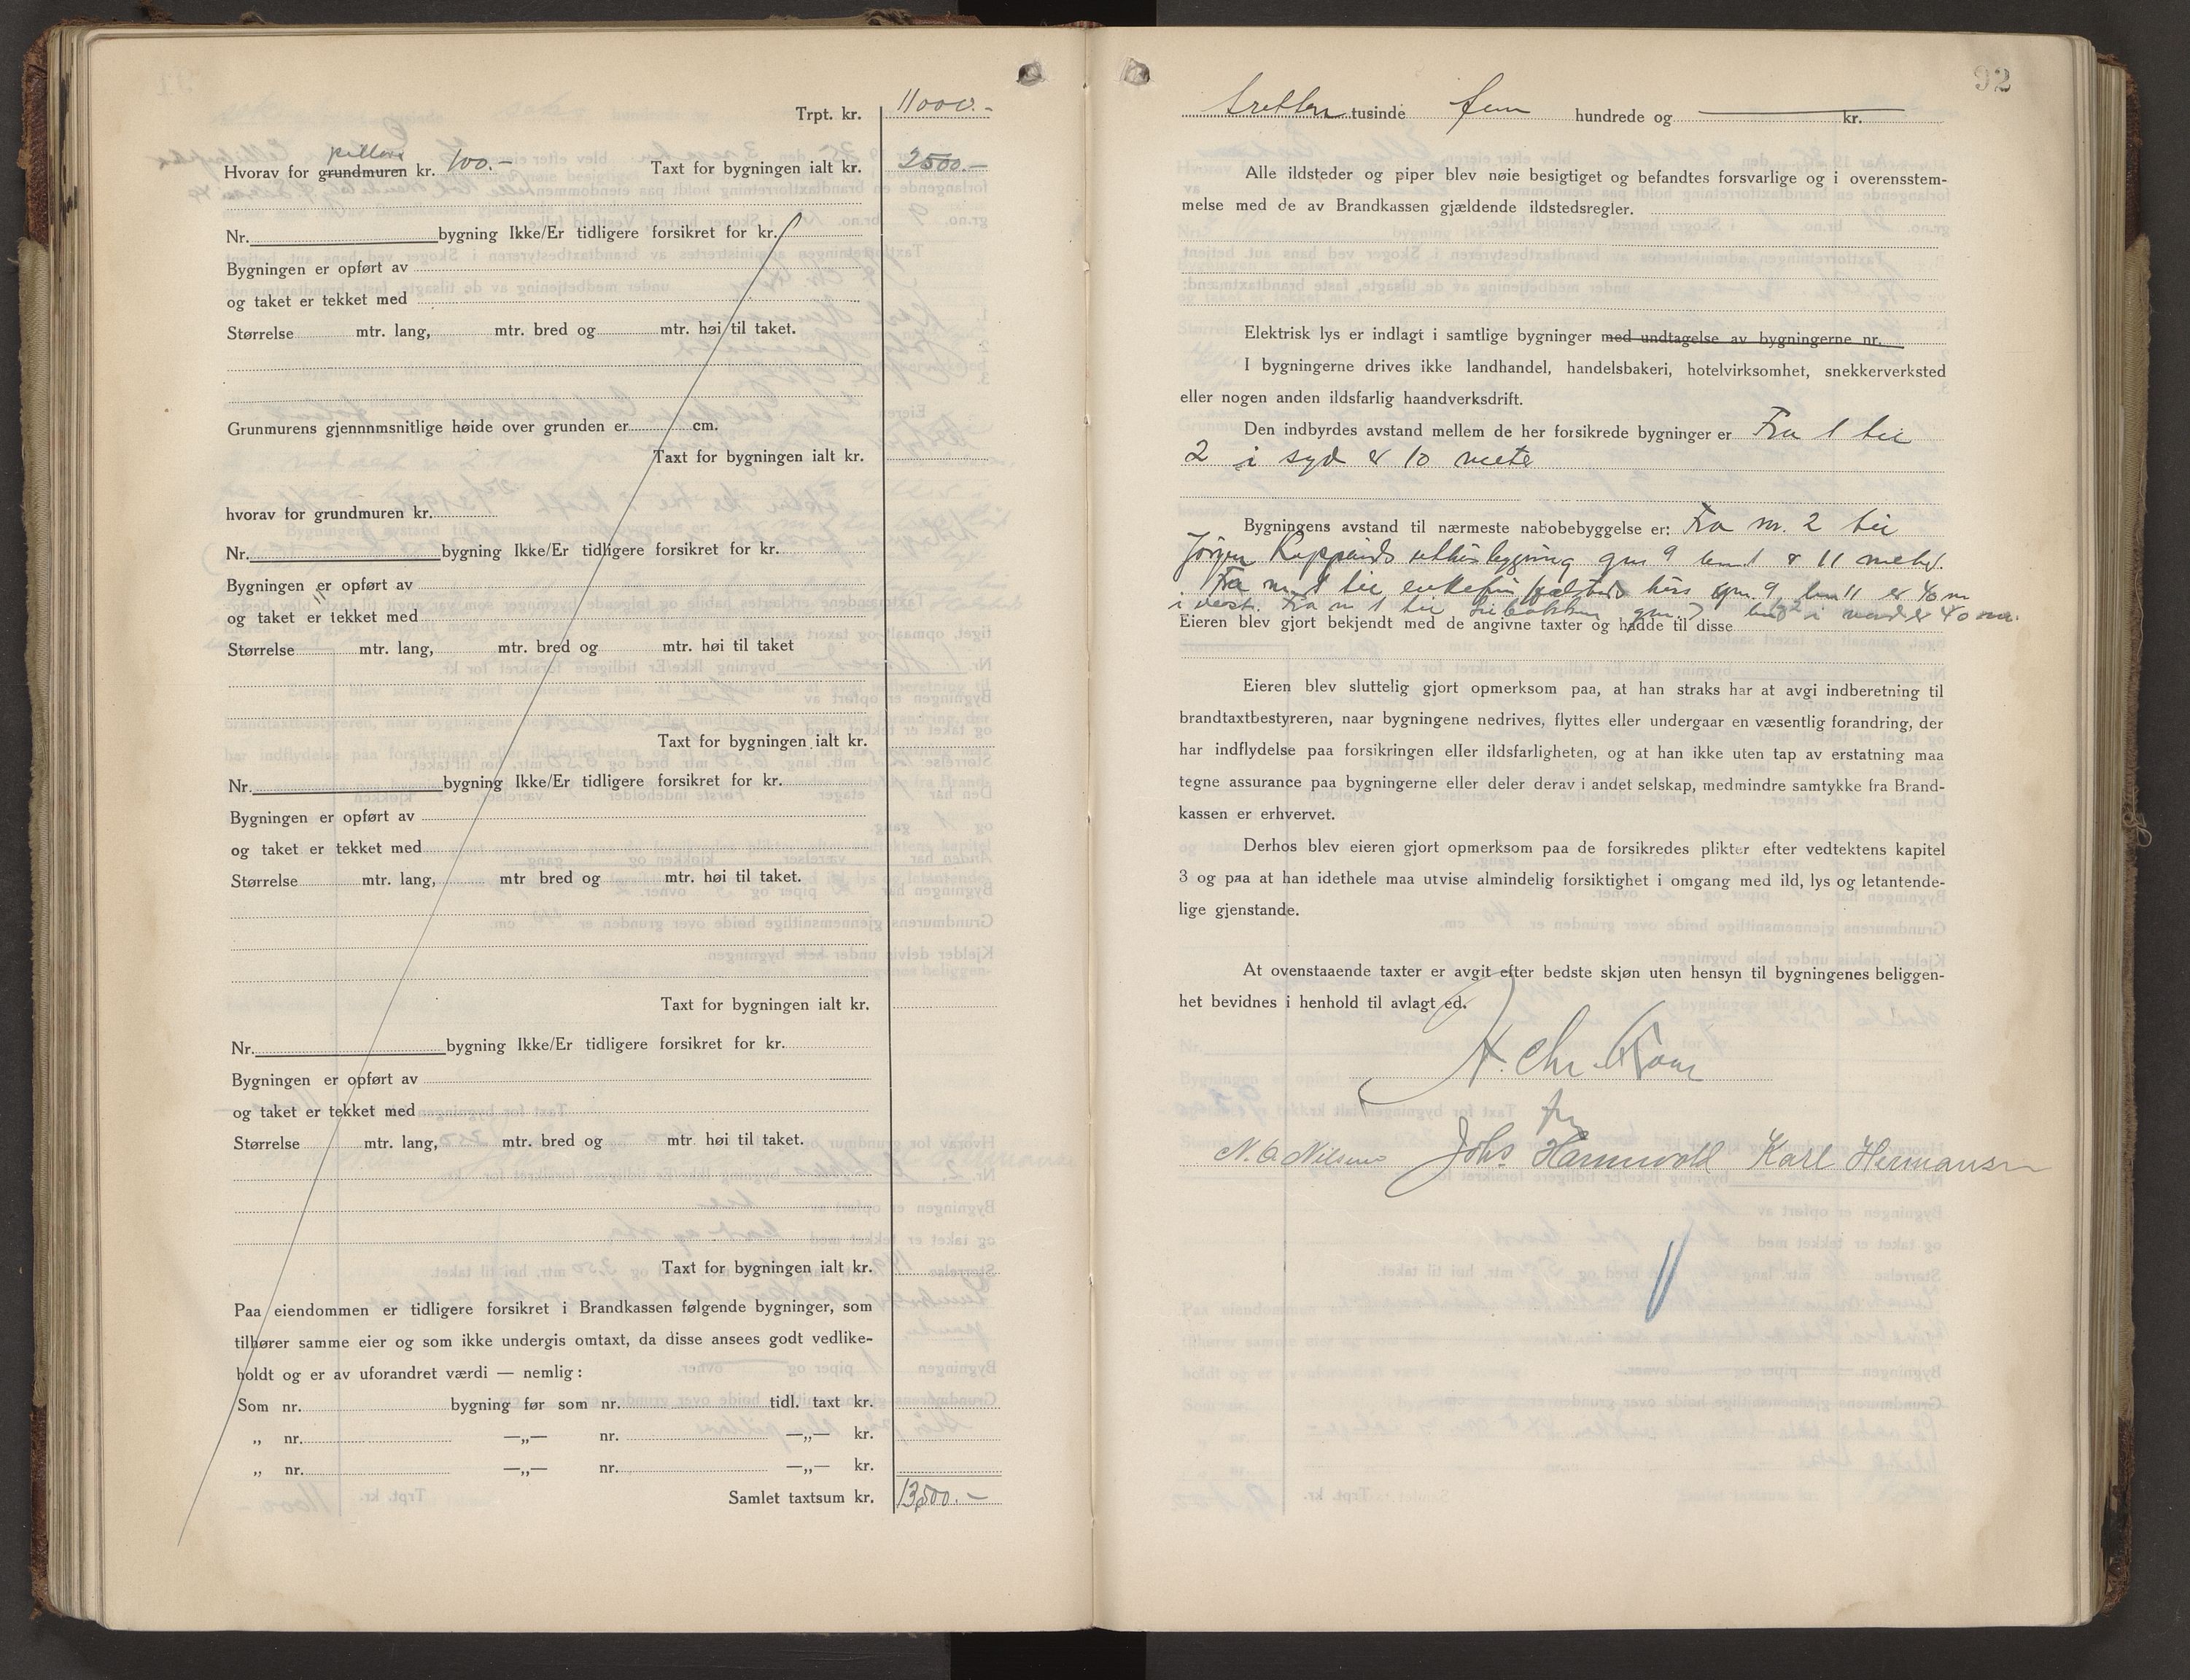 Trpt. kr. 11000.-
pillare
Hvorav for grundmuren kr. 100.- Taxt for bygningen ialt kr. 2500.-
Nr. bygning Ikke/Er tidligere forsikret for kr.
Bygningen er opført av
og taket er tekket med
Størrelse mtr. lang, mtr. bred og mtr. høi til taket.
Grunmurens gjennnmsnitlige høide over grunden er cm.
Taxt for bygningen ialt kr.
hvorav for grundmuren kr.
Nr. bygning Ikke/Er tidligere forsikret for kr.
Bygningen er opført av
og taket er tekket med
Størrelse mtr. lang, mtr. bred og mtr. høi til taket
Taxt for bygningen ialt kr.
Nr. bygning Ikke/Er tidligere forsikret for kr.
Bygningen er opført av
og taket er tekket med
Størrelse mtr. lang, mtr bred og mtr. høi til taket.
Taxt for bygningen ialt kr.
Nr. bygning Ikke/Er tidligere forsikret for kr.
Bygningen er opført av
og taket er tekket med
Størrelse mtr. lang, mtr. bred og mtr høi til taket.
Taxt for bygningen ialt kr.
Paa eiendommen er tidligere forsikret i Brandkassen følgende bygninger, som
tilhører samme eier og som ikke undergis omtaxt, da disse ansees godt vedlike-
holdt og er av uforandret værdi — nemlig:
Som nr. bygning før som nr. tidl. taxt kr.
„ nr. —„— nr. —„— kr.
„ nr. —„— nr. —„— kr.
Samlet taxtsum kr. 13,500.-
92
tretten tusinde fem hundrede og — kr.
Alle ildsteder og piper blev nøie besigtiget og befandtes forsvarlige og i overensstem-
melse med de av Brandkassen gjældende ildstedsregler.
Elektrisk lys er indlagt i samtlige bygninger med undtagelse av bygningerne nr.
I bygningerne drives ikke landhandel, handelsbakeri, hotelvirksomhet, snekkerverksted
eller nogen anden ildsfarlig haandverksdrift.
Den indbyrdes avstand mellem de her forsikrede bygninger er Fra 1 til
2 i syd er 10 meter
Bygningens avstand til nærmeste nabobebyggelse er: Fra nr. 2 til
Jörgen uthusbygning gnr 9 bnr 1 er 11 meter.
Fra nr. 1 til enkefru hus gnr. 9, bnr 11 er 40 m
i vest. Fra nr 1 til gnr. 7 i nord er 40 m.
Eieren blev gjort bekjendt med de angivne taxter og hadde til disse
Eieren blev sluttelig gjort opmerksom paa, at han straks har at avgi indberetning til
brandtaxtbestyreren, naar bygningene nedrives, flyttes eller undergaar en væsentlig forandring, der
har indflydelse paa forsikringen eller ildsfarligheten, og at han ikke uten tap av erstatning maa
tegne assurance paa bygningerne eller deler derav i andet selskap, medmindre samtykke fra Brand-
kassen er erhvervet.
Derhos blev eieren gjort opmerksom paa de forsikredes plikter efter vedtektens kapitel
3 og paa at han idethele maa utvise almindelig forsiktighet i omgang med ild, lys og letantende-
lige gjenstande.
At ovenstaaende taxter er avgit efter bedste skjøn uten hensyn til bygningenes beliggen-
het bevidnes i henhold til avlagt ed.
A. Chr.
N. O. Nilsen Johs. Hannevold Karl Hermansen